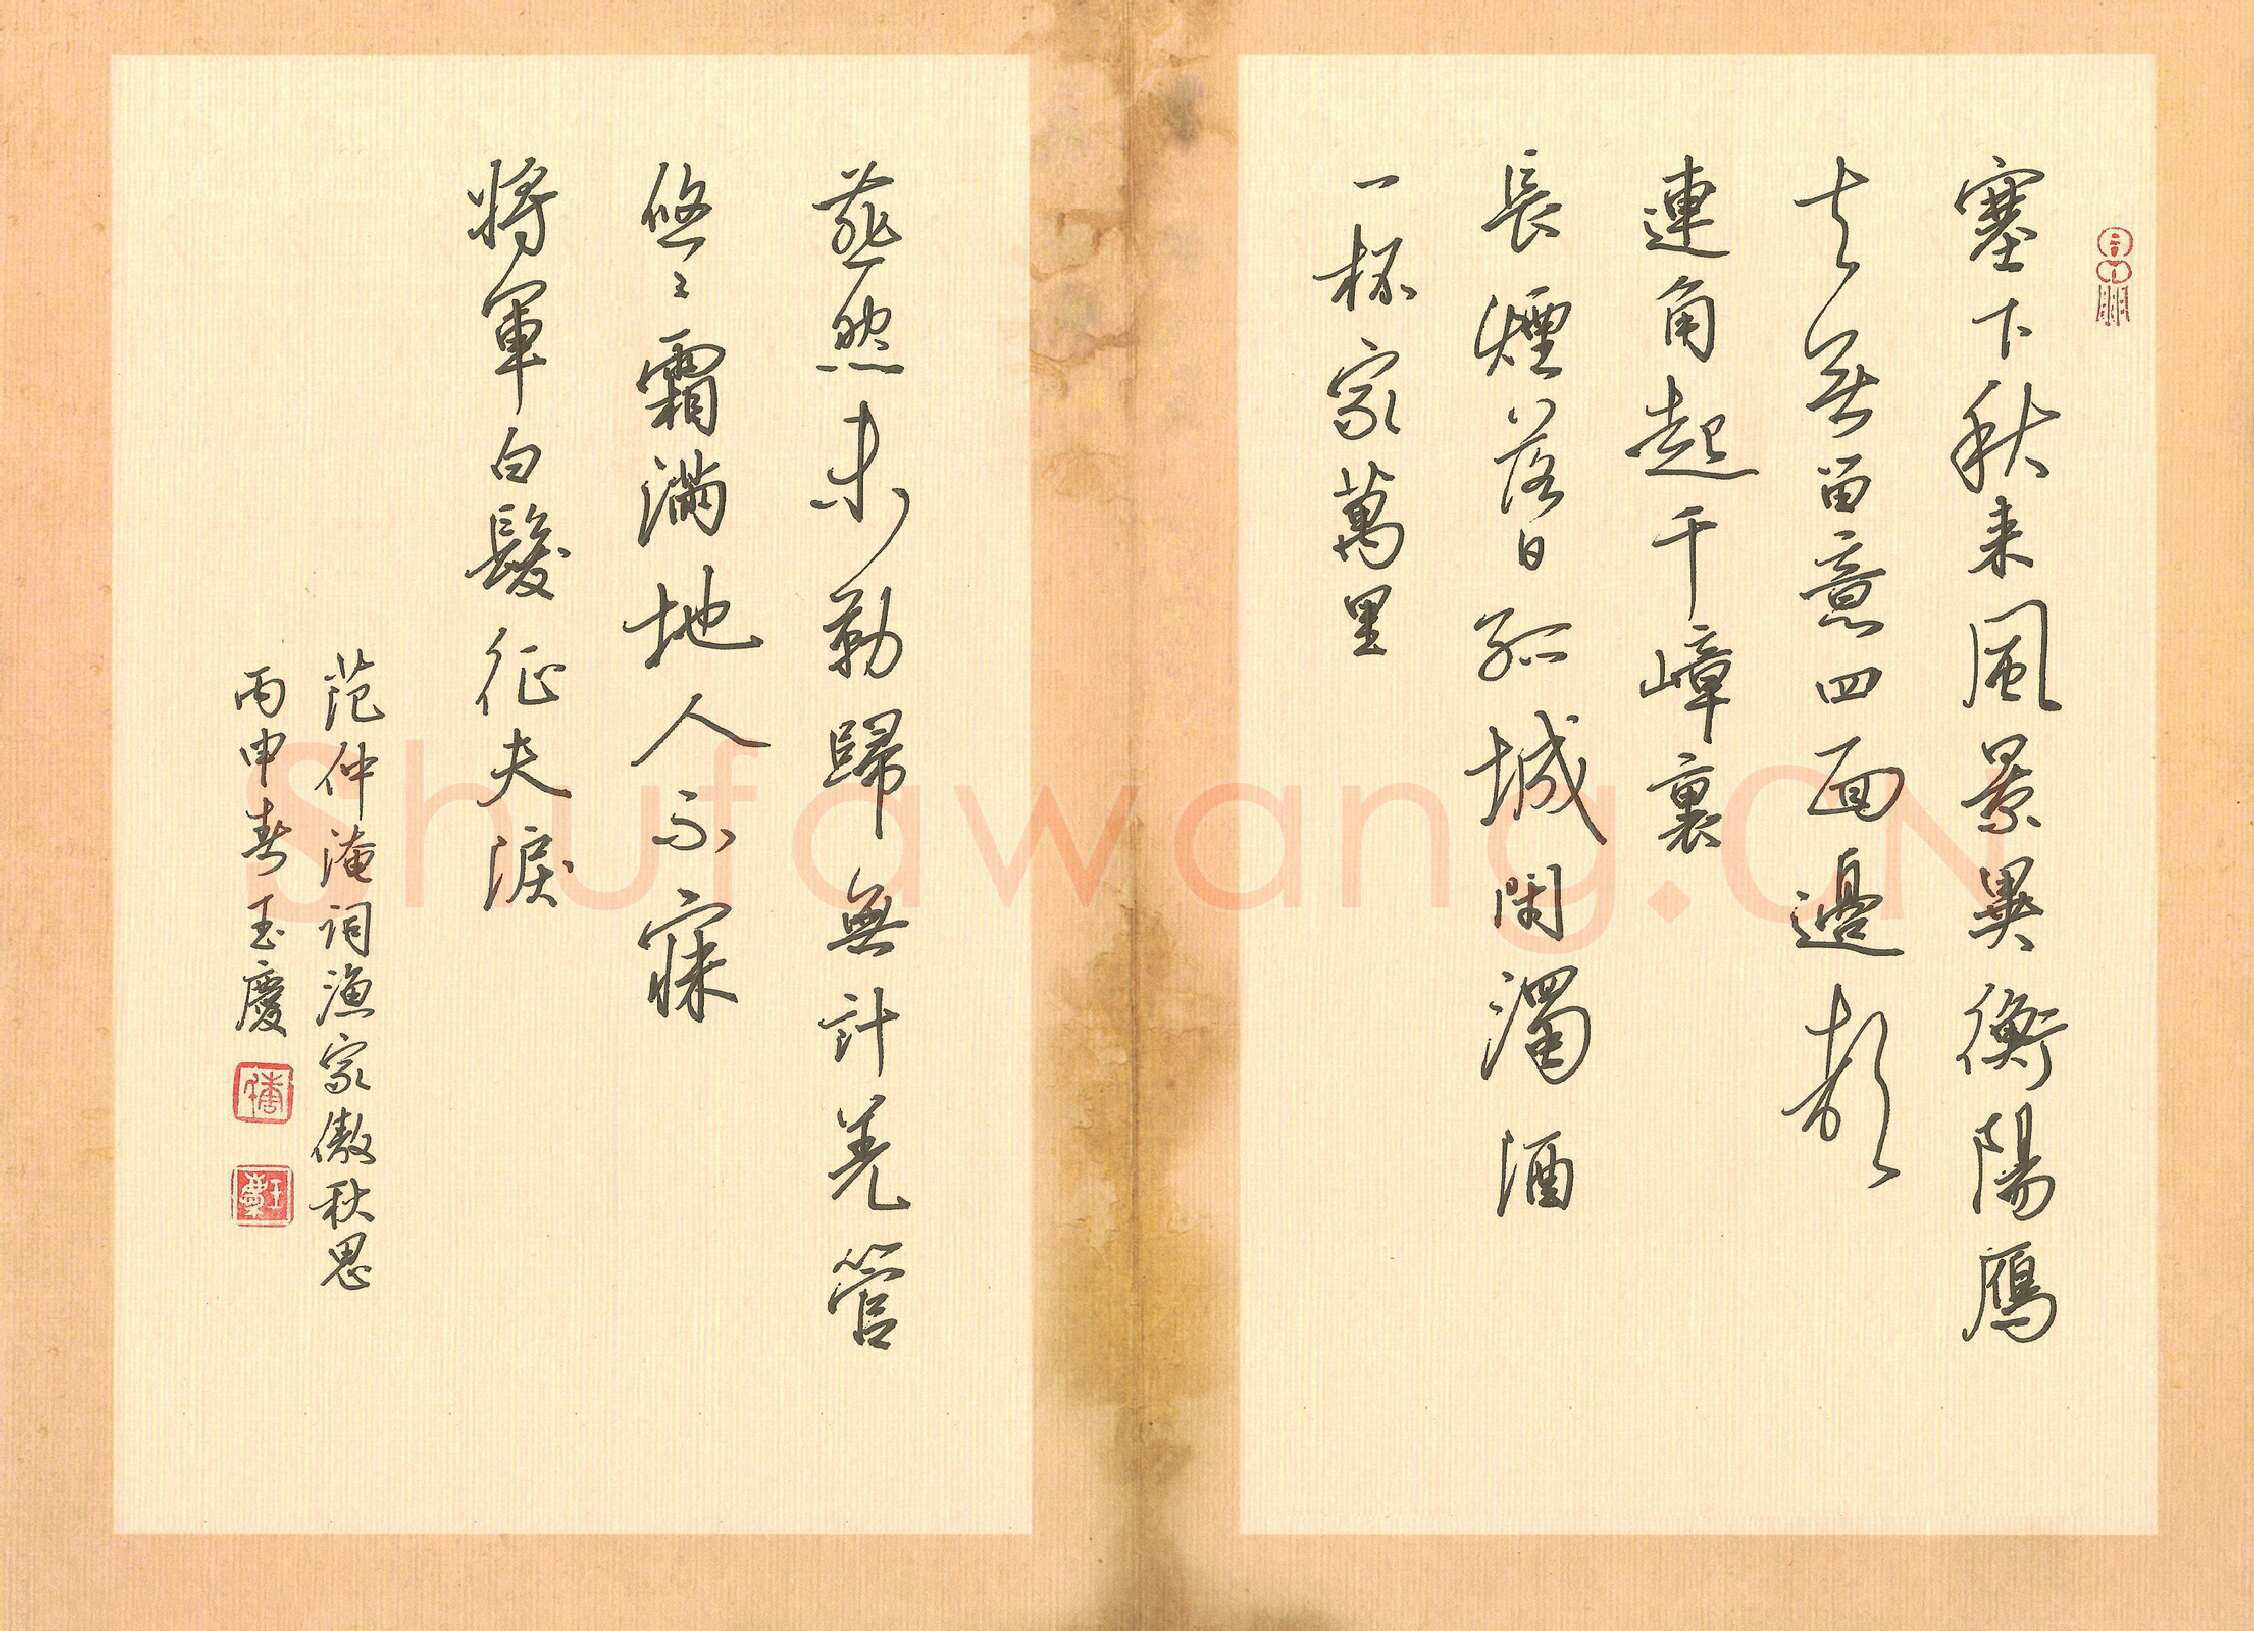 塞下秋来風景異衡陽雁
去無留意四面邉聲
連角起千嶂裏
長煙落日孤城閉濁酒
一杯家萬里
燕然未勒歸無計羌管
悠々霜滿地人不寐
將軍白髮征夫淚
范仲淹詞漁家傲秋思
丙申春玉慶
Shufawang.CN